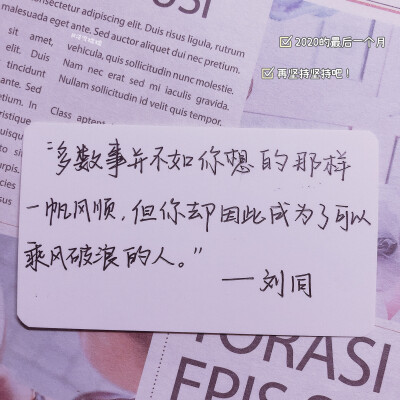 USI
consectetur adipiscing elit.
malesuada eget ante.
Duis risus ligula, rutrum
Sed auctor aliquet dui nec pretium.
sit amet,
vehicula, quis sollicitudin nunc molestie.
elit. Duis
Nam nec erat sed mi iaculis gravida.
tincident
Nullam sollicitudin id velit quis tempor.
ante. Sed
pretium. In
Class aptent
☑ 2020的最后一个月
☑ 再坚持坚持吧！
“多数事并不如你想的那样
一帆风顺，但你却因此成为了可以
乘风破浪的人。”
——刘同
TORASI
EPIS